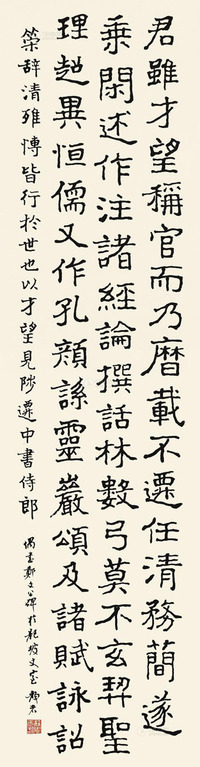 君雖才望稱官而乃曆載不遷任清務簡遂
乘閑述作注諸經論撰話林數弓莫不玄契聖
理超異恒儒又作孔顏誄靈巖頌及諸賦詠詔
策辞清雅博皆行於世也以才望見陟遷中書侍郎
偶書鄭文公碑於